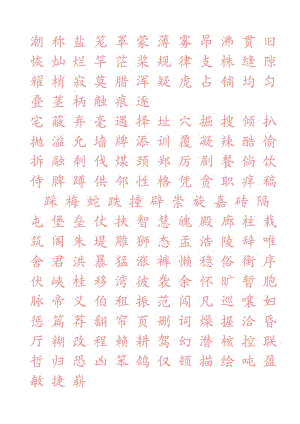 潮称盐笼罩蒙薄雾昂沸贯旧
恢灿烂罕茫桨规律支株缝隙
耀梢寂莫腊浑疑虎占铺均匀
叠茎柄触痕逐
宅蔽弃毫遇择址穴掘搜倾扒
抛溢允墙牌添训覆凝辣酷愉
拆融剩伐煤颈郑厉剧餐倘饮
侍脾蹲供邻性格凭贪职痒稿
踩梅蛇跌撞辟崇旋嘉砖隔
屯堡垒仗扶智慧魄殿廊柱栽
筑阁朱堤雕狮态孟浩陵辞唯
舍君洪暴猛涨裤懒稳俗衡序
伏峡桂移湾披袭余怀旷暂胞
脉帝义伯租振范闻凡巡嚷妇
惩篇荐翻帘页删词燥握洽昏
厅糊改程赖耕驾幻潜核控联
哲归恐凶笨鸽仅顿描绘吨盈
敏捷崭